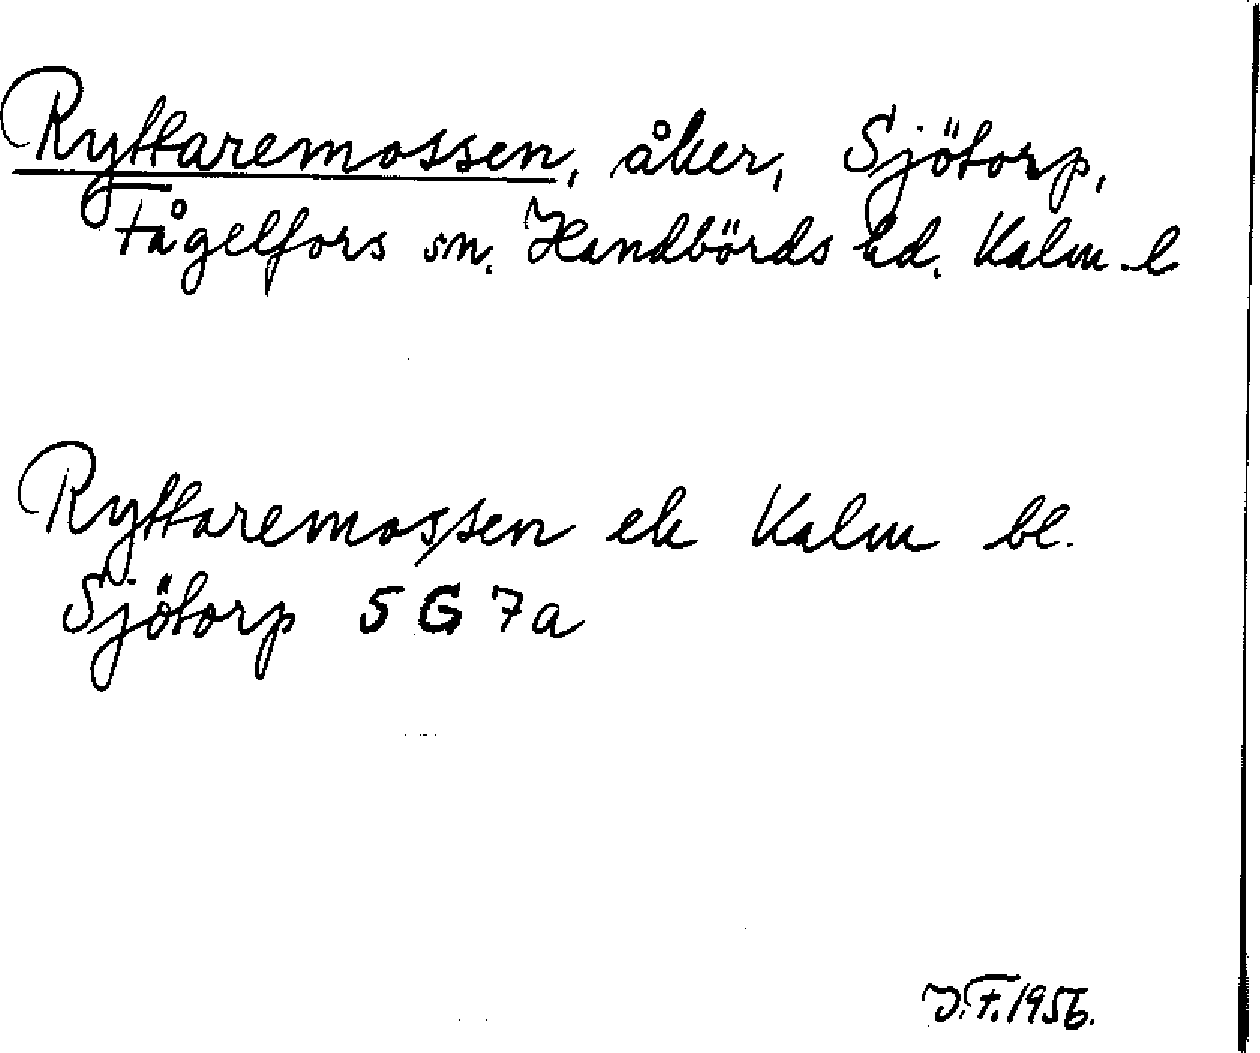 Ryttaremossen, åker, Sjötorp,
Fågelfors sn. Handbörds hd. Kalm. l
Ryttaremossen ek Kalm bl.
Sjötorp 5 G 7a
J.F. 1956.